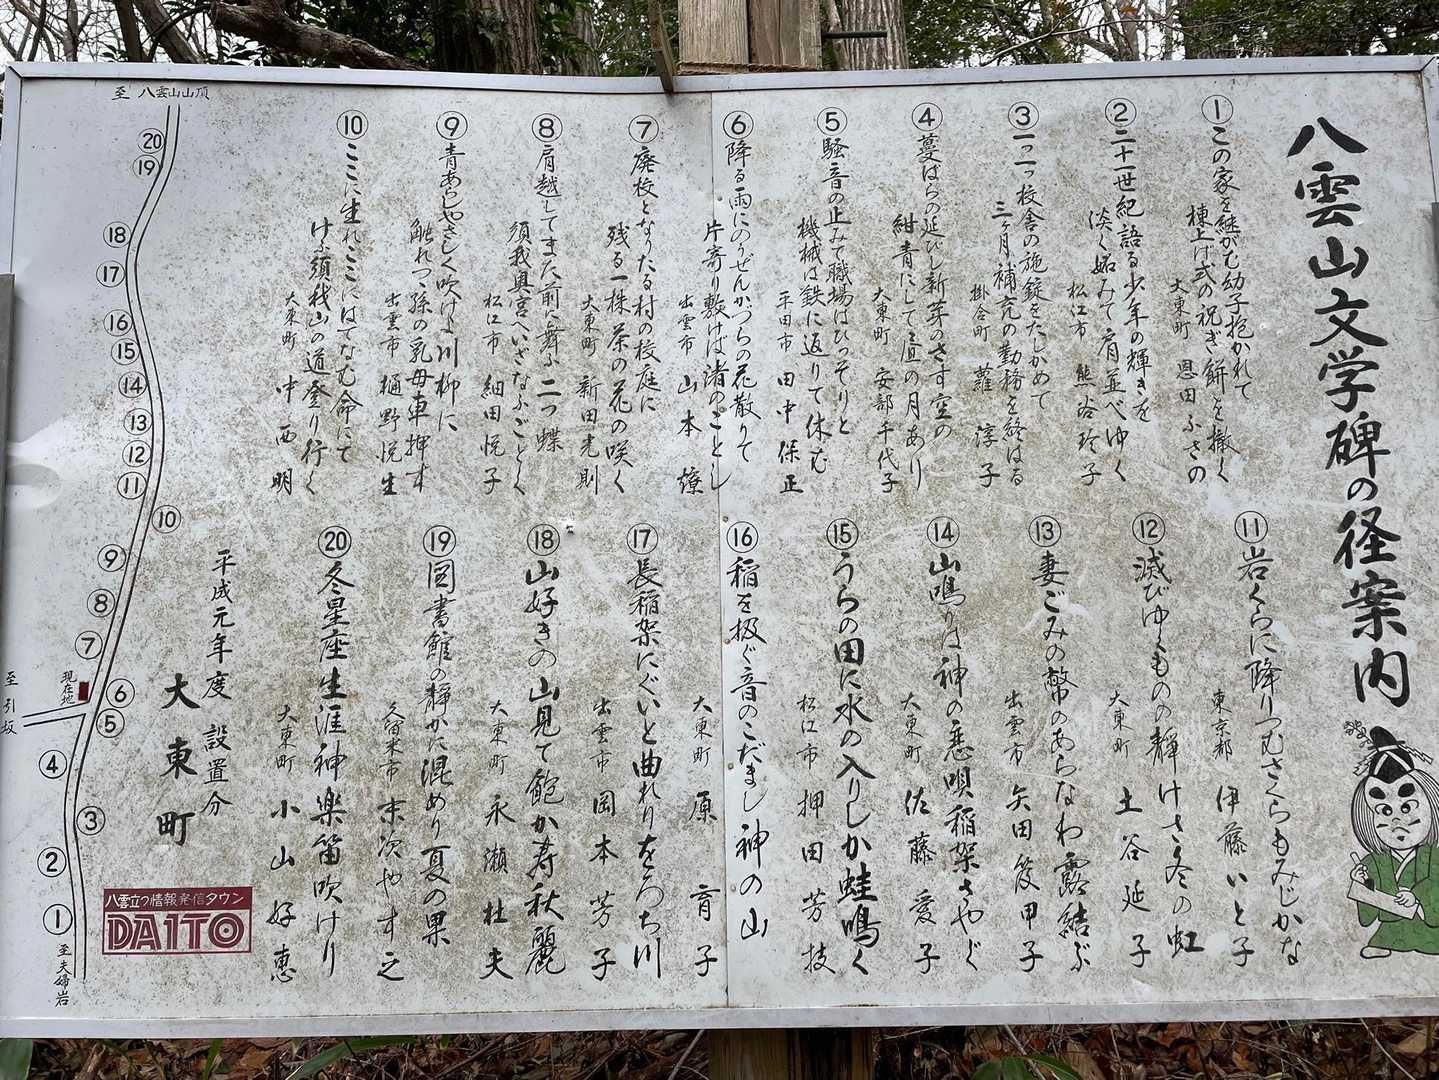 八雲山文学碑の径案内
①この家を継がむ幼子抱かれて
棟上げ式の祝ぎ餅を撒く
大東町 恩田ふさの
②二十一世紀語る少年の輝きを
淡く妬みて肩並べゆく
松江市 熊谷玲子
③一つ一つ校舎の施錠をたしかめて
三ヶ月補充の勤務を終はる
掛合町 蘿淳子
④蔓ばらの延びし新芽のさす空の
紺青にして昼の月あり
大東町 安部千代子
⑤騒音の止みて職場はひっそりと
機械は鉄に返りて休む
平田市 田中保正
⑥降る雨にのうぜんかづらの花散りて
片寄り敷けば渚のごとし
出雲市 山本燎
⑦廃校となりたる村の校庭に
残る一株茶の花の咲く
大東町 新田光則
⑧肩越してまた前に舞ふ二つ蝶
須我奥宮へいざなふごとく
松江市 細田悦子
⑨青あらしやさしく吹けよ川柳に
触れつゝ孫の乳母車押す
出雲市 樋野悦生
⑩ここに生れここにはてなむ命にて
けふ須我山の道登り行く
大東町 中西明
⑪岩くらに降りつむさくらもみじかな
東京都 伊藤いと子
⑫滅びゆくものの静けさ冬の虹
大東町 土谷延子
⑬妻ごみの幣のあらなわ露結ぶ
出雲市 矢田笈甲子
⑭山鳴りは神の恋唄稲架さやぐ
大東町 佐藤愛子
⑮うらの田に水の入りしか蛙鳴く
松江市 押田芳技
⑯稲を扱ぐ音のこだまし神の山
大東町 原育子
⑰長稲架にぐいと曲れりをろち川
出雲市 岡本芳子
⑱山好きの山見て飽かず秋麗
大東町 永瀬杜夫
⑲図書館の静かに混めり夏の果
久留米市 末次やす之
⑳冬星座生涯神楽笛吹けり
大東町 小山好恵
平成元年度 設置分
大東町
至 八雲山山頂
⑳
⑲
⑱
⑰
⑯
⑮
⑭
⑬
⑫
⑪
⑩
⑨
⑧
⑦
現在地
至引坂
⑥
⑤
④
③
②
①
至夫婦岩
八雲立つ情報発信タウン
DAITO